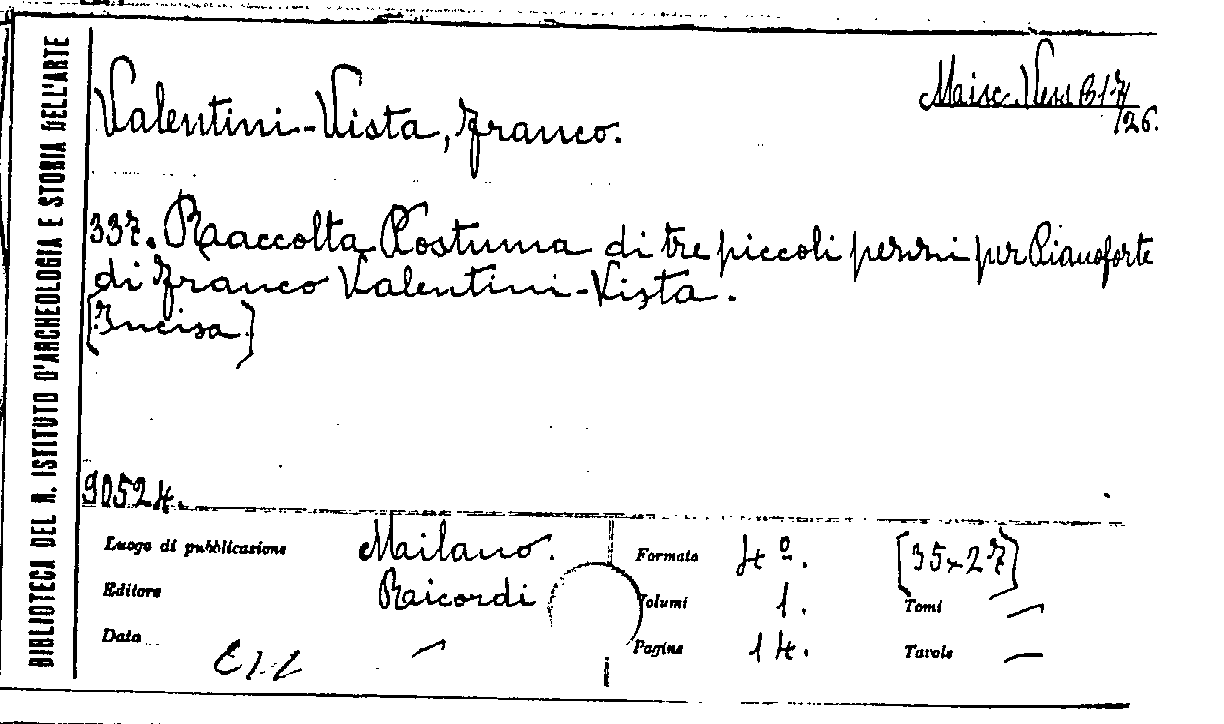 BIBLIOTECA DEL R. ISTITUTO D'ARCHEOLOGIA E STORIA DELL'ARTE
Valentini-Vista, Franco.
Misc. Vess B 17
/26.
337. Raccolta Postuma di tre piccoli pezzi per Pianoforte
di Franco Valentini-Vista.
[Incisa]
90524.
Luogo di pubblicazione Milano. Formato 4º. [35×27]
Editore Ricordi Volumi 1. Tomi —
Data — Pagine 14. Tavole —